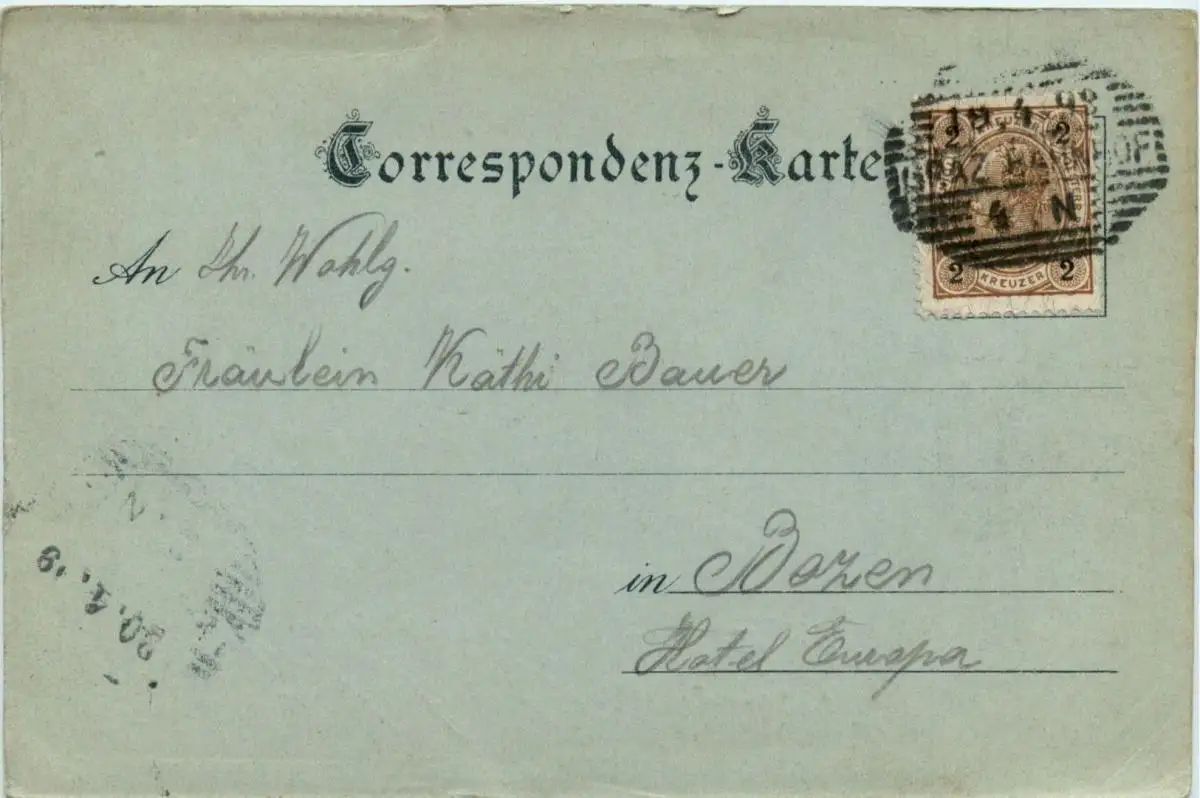 Correspondenz-Karte
19.4.98
GRAZ BAHNHOF
4 N
2 KREUZER 2
2 KREUZER 2
An Ihr. Wohlg.
Fräulein Käthi Bauer
in Bozen
Hotel Europa
20.4.9